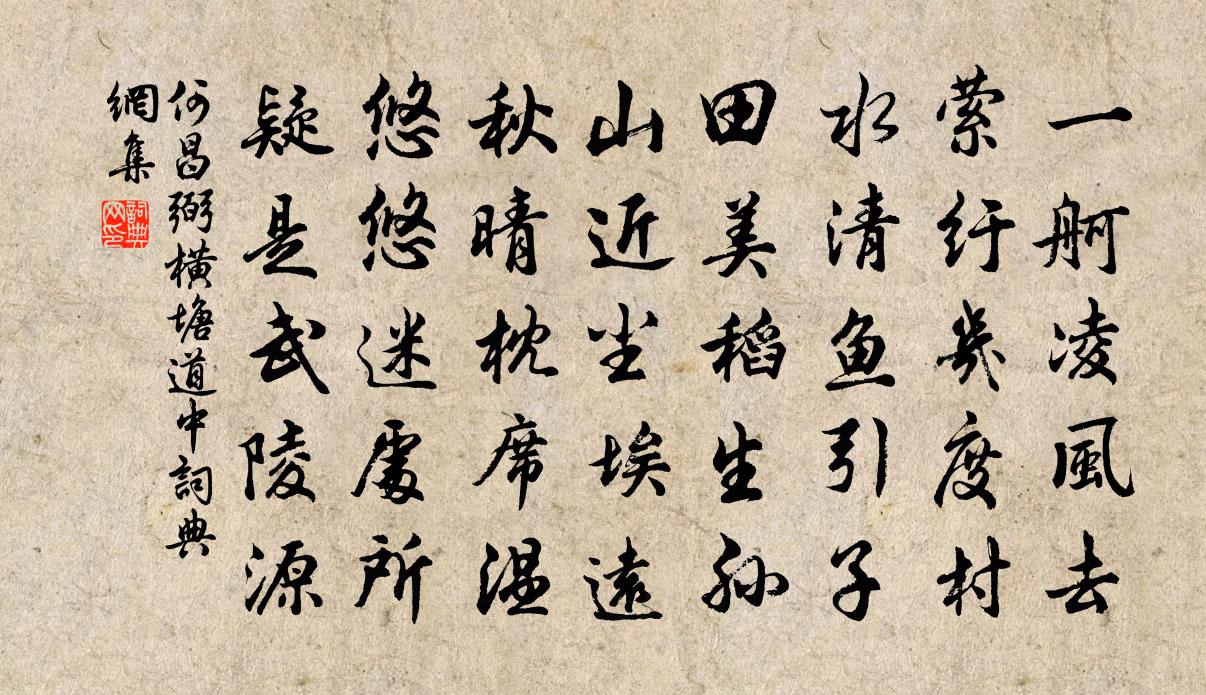 一舸凌風去
萦纡幾度村
水清鱼引子
田美稻生孙
山近尘埃遠
秋晴枕席温
悠悠迷處所
疑是武陵源
何昌弼橫塘道中詞典
網集
詞典
网印